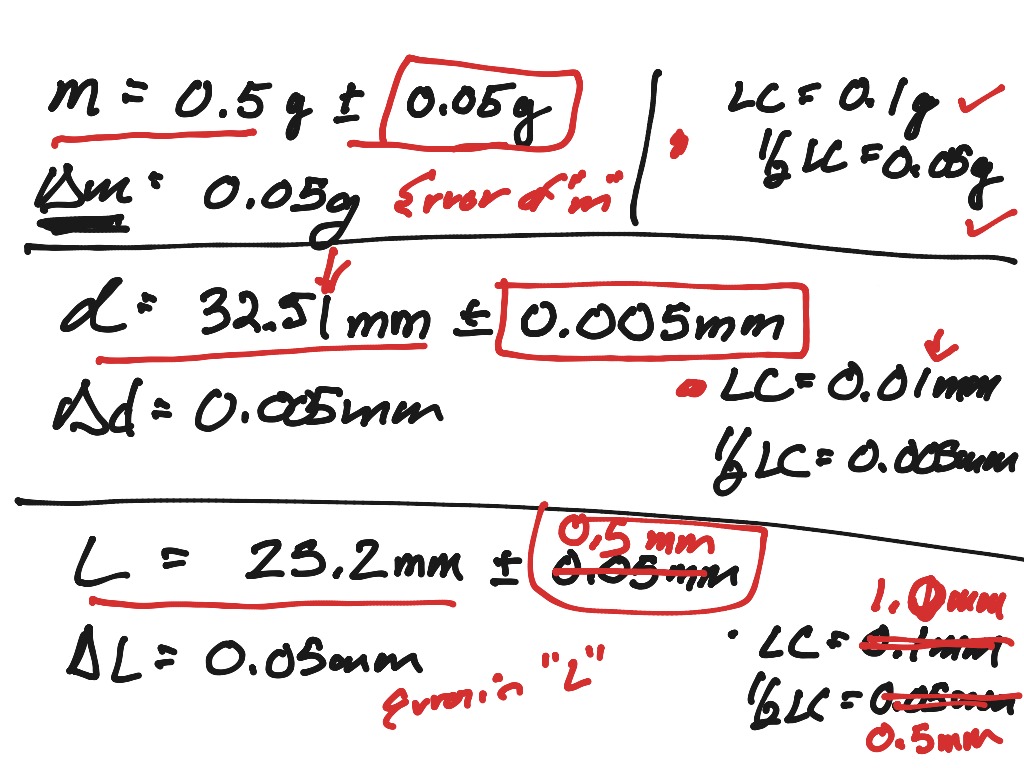 m = 0.5 g ± 0.05g
LC = 0.1g ✓
½ LC = 0.05g ✓
Δm = 0.05g Error of "m"
d = 32.51 mm ± 0.005mm
LC = 0.01mm
Δd = 0.005mm
½ LC = 0.005mm
0.5 mm
L = 23.2mm ± 0.05mm
1.0mm
LC = 0.1mm
ΔL = 0.05mm
Error in "L"
½ LC = 0.05mm
0.5mm